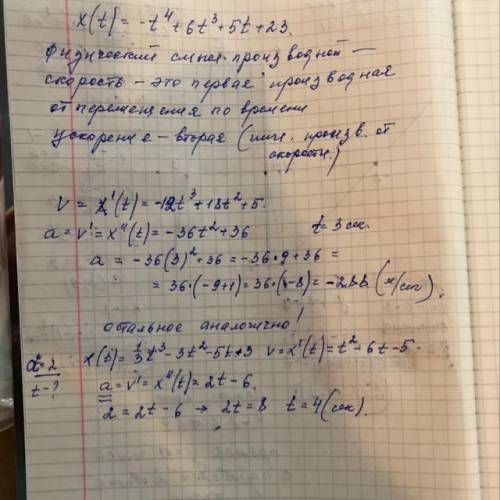 x(t) = -t⁴ + 6t³ + 5t + 23.
Физический смысл производной —
скорость – это первая производная
от перемещения по времени
ускорение – вторая (или произв. от
скорости.)
v = x'(t) = -12t³ + 18t² + 5.
a = v' = x''(t) = -36t² + 36 t = 3 сек.
a = -36(3)² + 36 = -36·9 + 36 =
= 36·(-9+1) = 36·(-8) = -288 (м/сек).
остальное аналогично!
x(t) = 1/3 t³ - 3t² - 5t + 3 v = x'(t) = t² - 6t - 5
a = 2
t - ?
a = v' = x''(t) = 2t - 6.
2 = 2t - 6 → 2t = 8 t = 4 (сек).